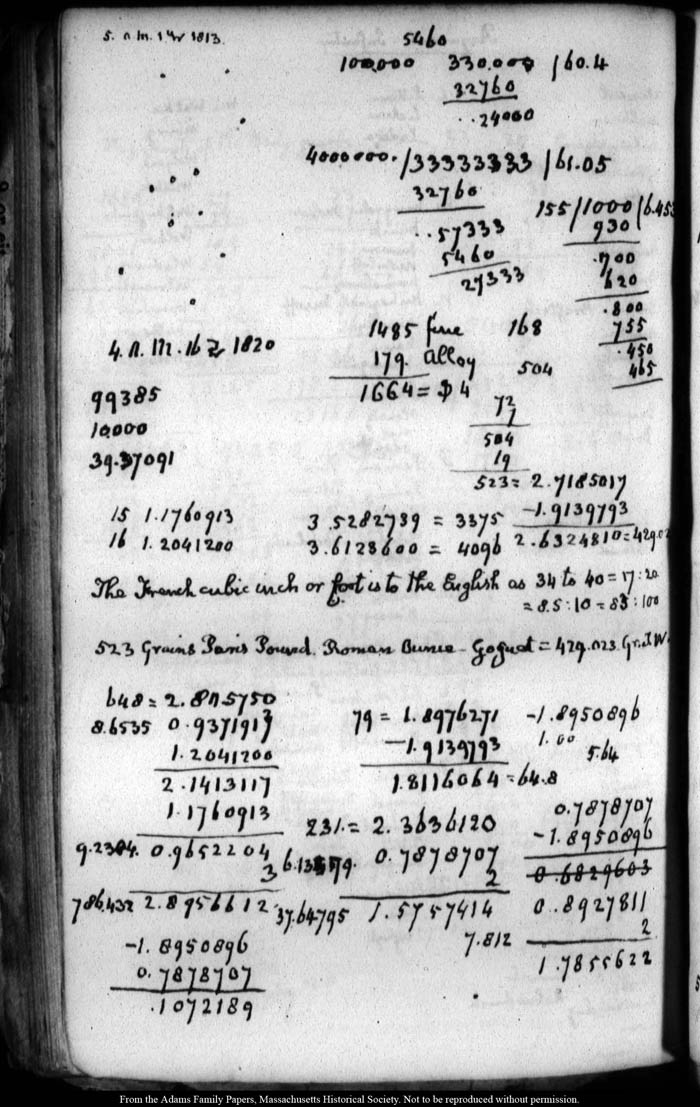 1813.
5460
100,000 330.000 /60.4
32760
..24000
4000000./33333333 /61.05
32760
..57333
5460
27333
155/1000/6.453
930
.700
620
.800
755
.450
465
4. A. M. 16 1820
1485 fine 168
179. alloy 504
1664 = $ 4
72
7
504
19
523 = 2.7185017
-1.9139793
2.6324810=429.02
99385
10,000
39.37091
15 1.1760913
16 1.2041200
3.5282739 = 3375
3.6123600 = 4096
The French cubic inch or foot is to the English as 34 to 40 = 17:20
= 8.5:10 = 85:100
523 Grains Paris Pound. Roman Ounce - Goguet = 429.023. Gr.
648 = 2.8115750
8.6535 0.9371917
1.2041200
2.1413117
1.1760913
9.2304. 0.9652204
3
786.432 2.8956612
-1.8950896
0.7878707
.1072189
79 = 1.8976271
-1.9139793
1.8116064 = 64.8
231. = 2.3636120
0.7878707
2
37.64795 1.5757414
7.812
-1.8950896
1.00
5.64
0.7878707
-1.8950896
0.6829603
0.8927811
2
1.7855622
From the Adams Family Papers, Massachusetts Historical Society. Not to be reproduced without permission.